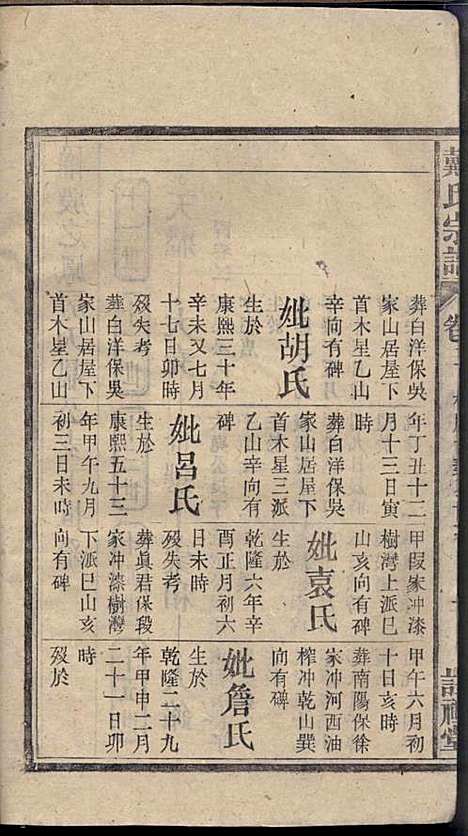 戴氏宗譜
卷
註禮堂
葬白洋保吳
家山居屋下
首木星乙山
辛向有碑
妣胡氏
生於
康熙三十年
辛未又七月
十七日卯時
歿失考
葬白洋保吳
家山居屋下
首木星乙山
年丁丑十二
月十三日寅
時
葬白洋保吳
家山居屋下
首木星三派
乙山辛向有
碑
妣呂氏
生於
康熙五十三
年甲午九月
初三日未時
甲叚家冲漆
樹灣上派巳
山亥向有碑
妣袁氏
生於
乾隆六年辛
酉正月初六
日未時
歿失考
葬真君保叚
家冲漆樹灣
下派巳山亥
向有碑
甲午六月初
十日亥時
葬南陽保徐
家冲河西油
榨冲乾山巽
向有碑
妣詹氏
生於
乾隆二十九
年甲申二月
二十一日卯
時
歿於